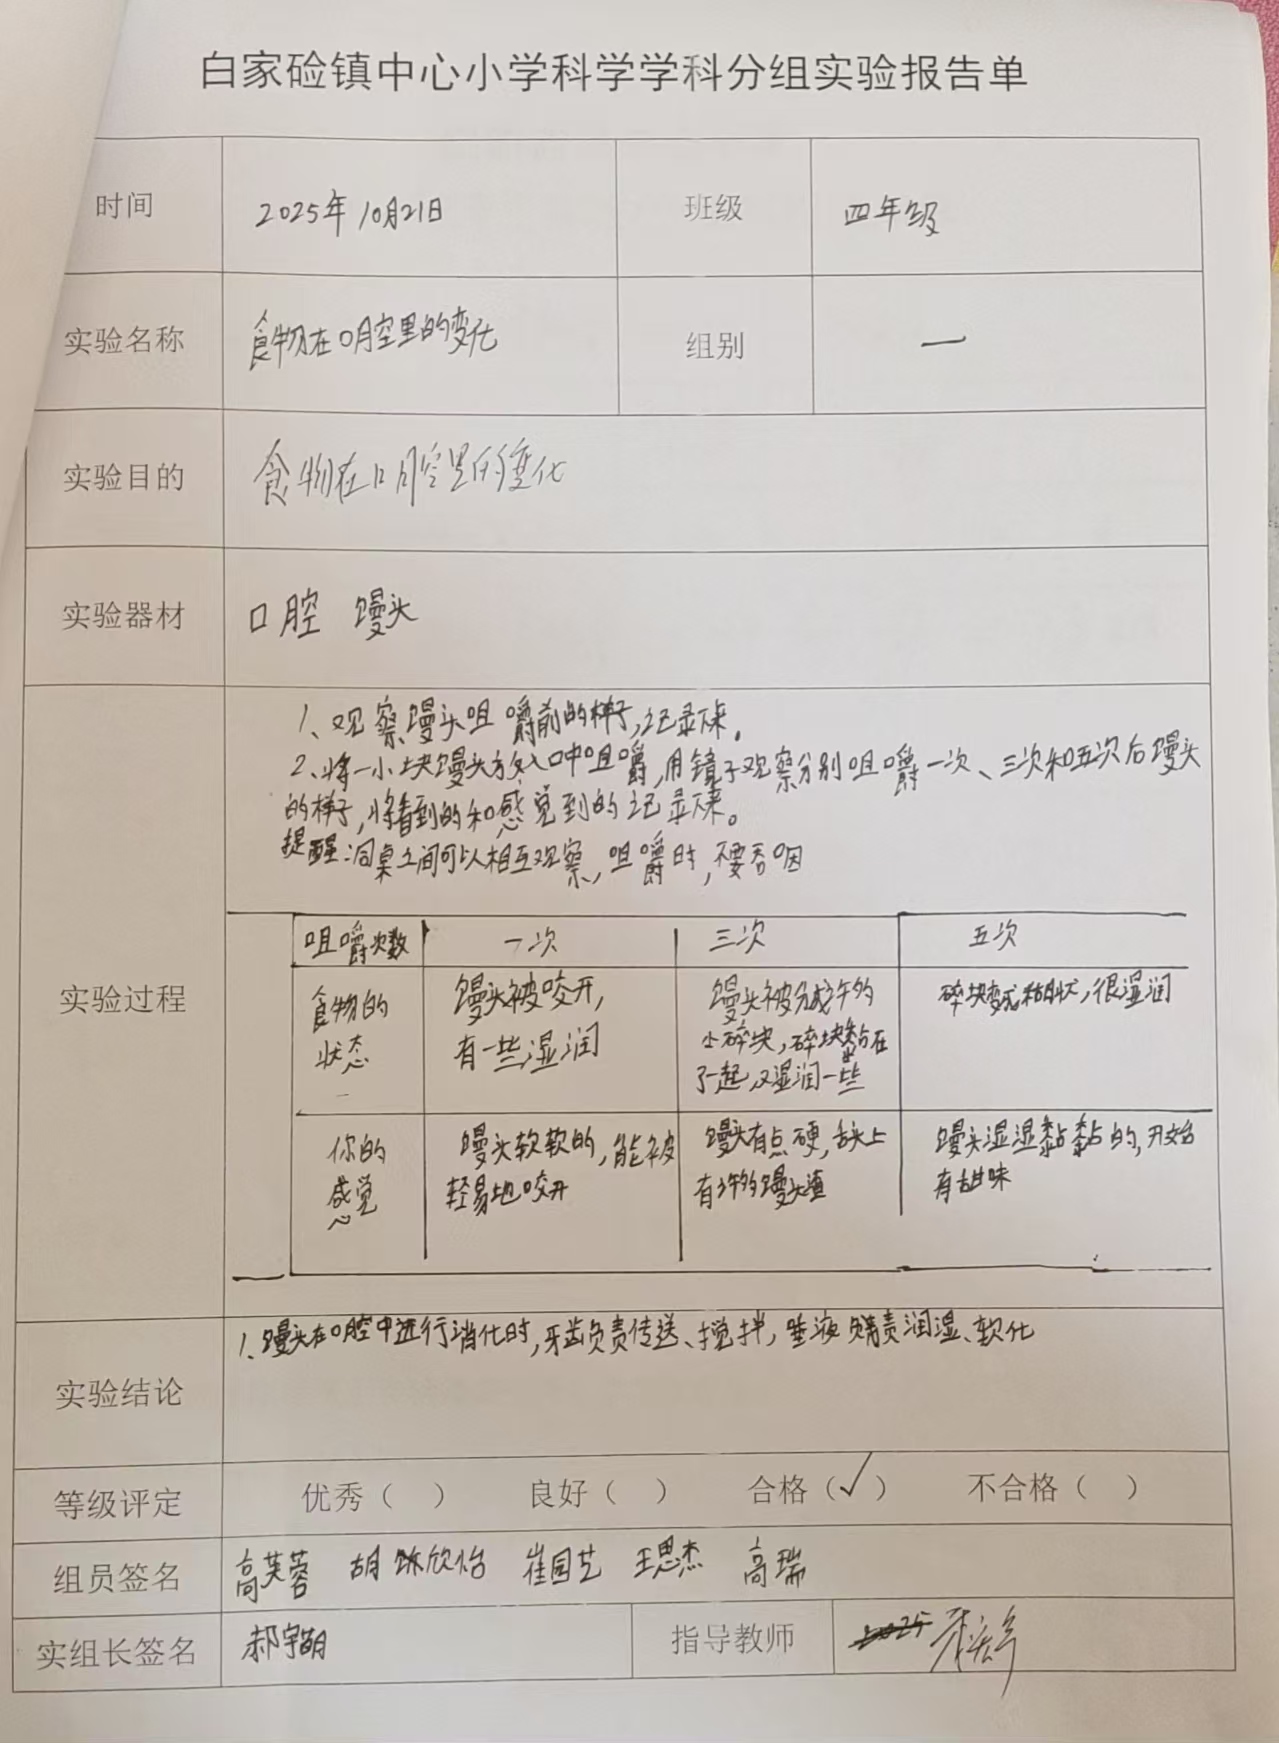 白家硷镇中心小学科学学科分组实验报告单
时间 2025年10月21日 班级 四年级
实验名称 食物在口腔里的变化 组别 一
实验目的 食物在口腔里的变化
实验器材 口腔 馒头
实验过程
1、观察馒头咀嚼前的样子,记录下来。
2、将一小块馒头放入口中咀嚼,用镜子观察分别咀嚼一次、三次和五次后馒头
的样子,将看到的和感觉到的记录下来。
提醒:同桌之间可以相互观察,咀嚼时,不要吞咽
咀嚼次数 一次 三次 五次
食物的
状态
馒头被咬开,
有一些湿润
馒头被分成许多的
小碎块,碎块黏在
了一起,又湿润一些
碎块变成粘状,很湿润
你的
感觉
馒头软软的,能被
轻易地咬开
馒头有点硬,舌头上
有许多的馒头渣
馒头湿湿黏黏的,开始
有甜味
实验结论
1、馒头在口腔中进行消化时,牙齿负责传送、搅拌,唾液负责润湿、软化
等级评定 优秀( ) 良好( ) 合格(✓) 不合格( )
组员签名 高芙蓉 胡 欣怡 崔园艺 王思杰 高瑞
实组长签名 郝宇 指导教师